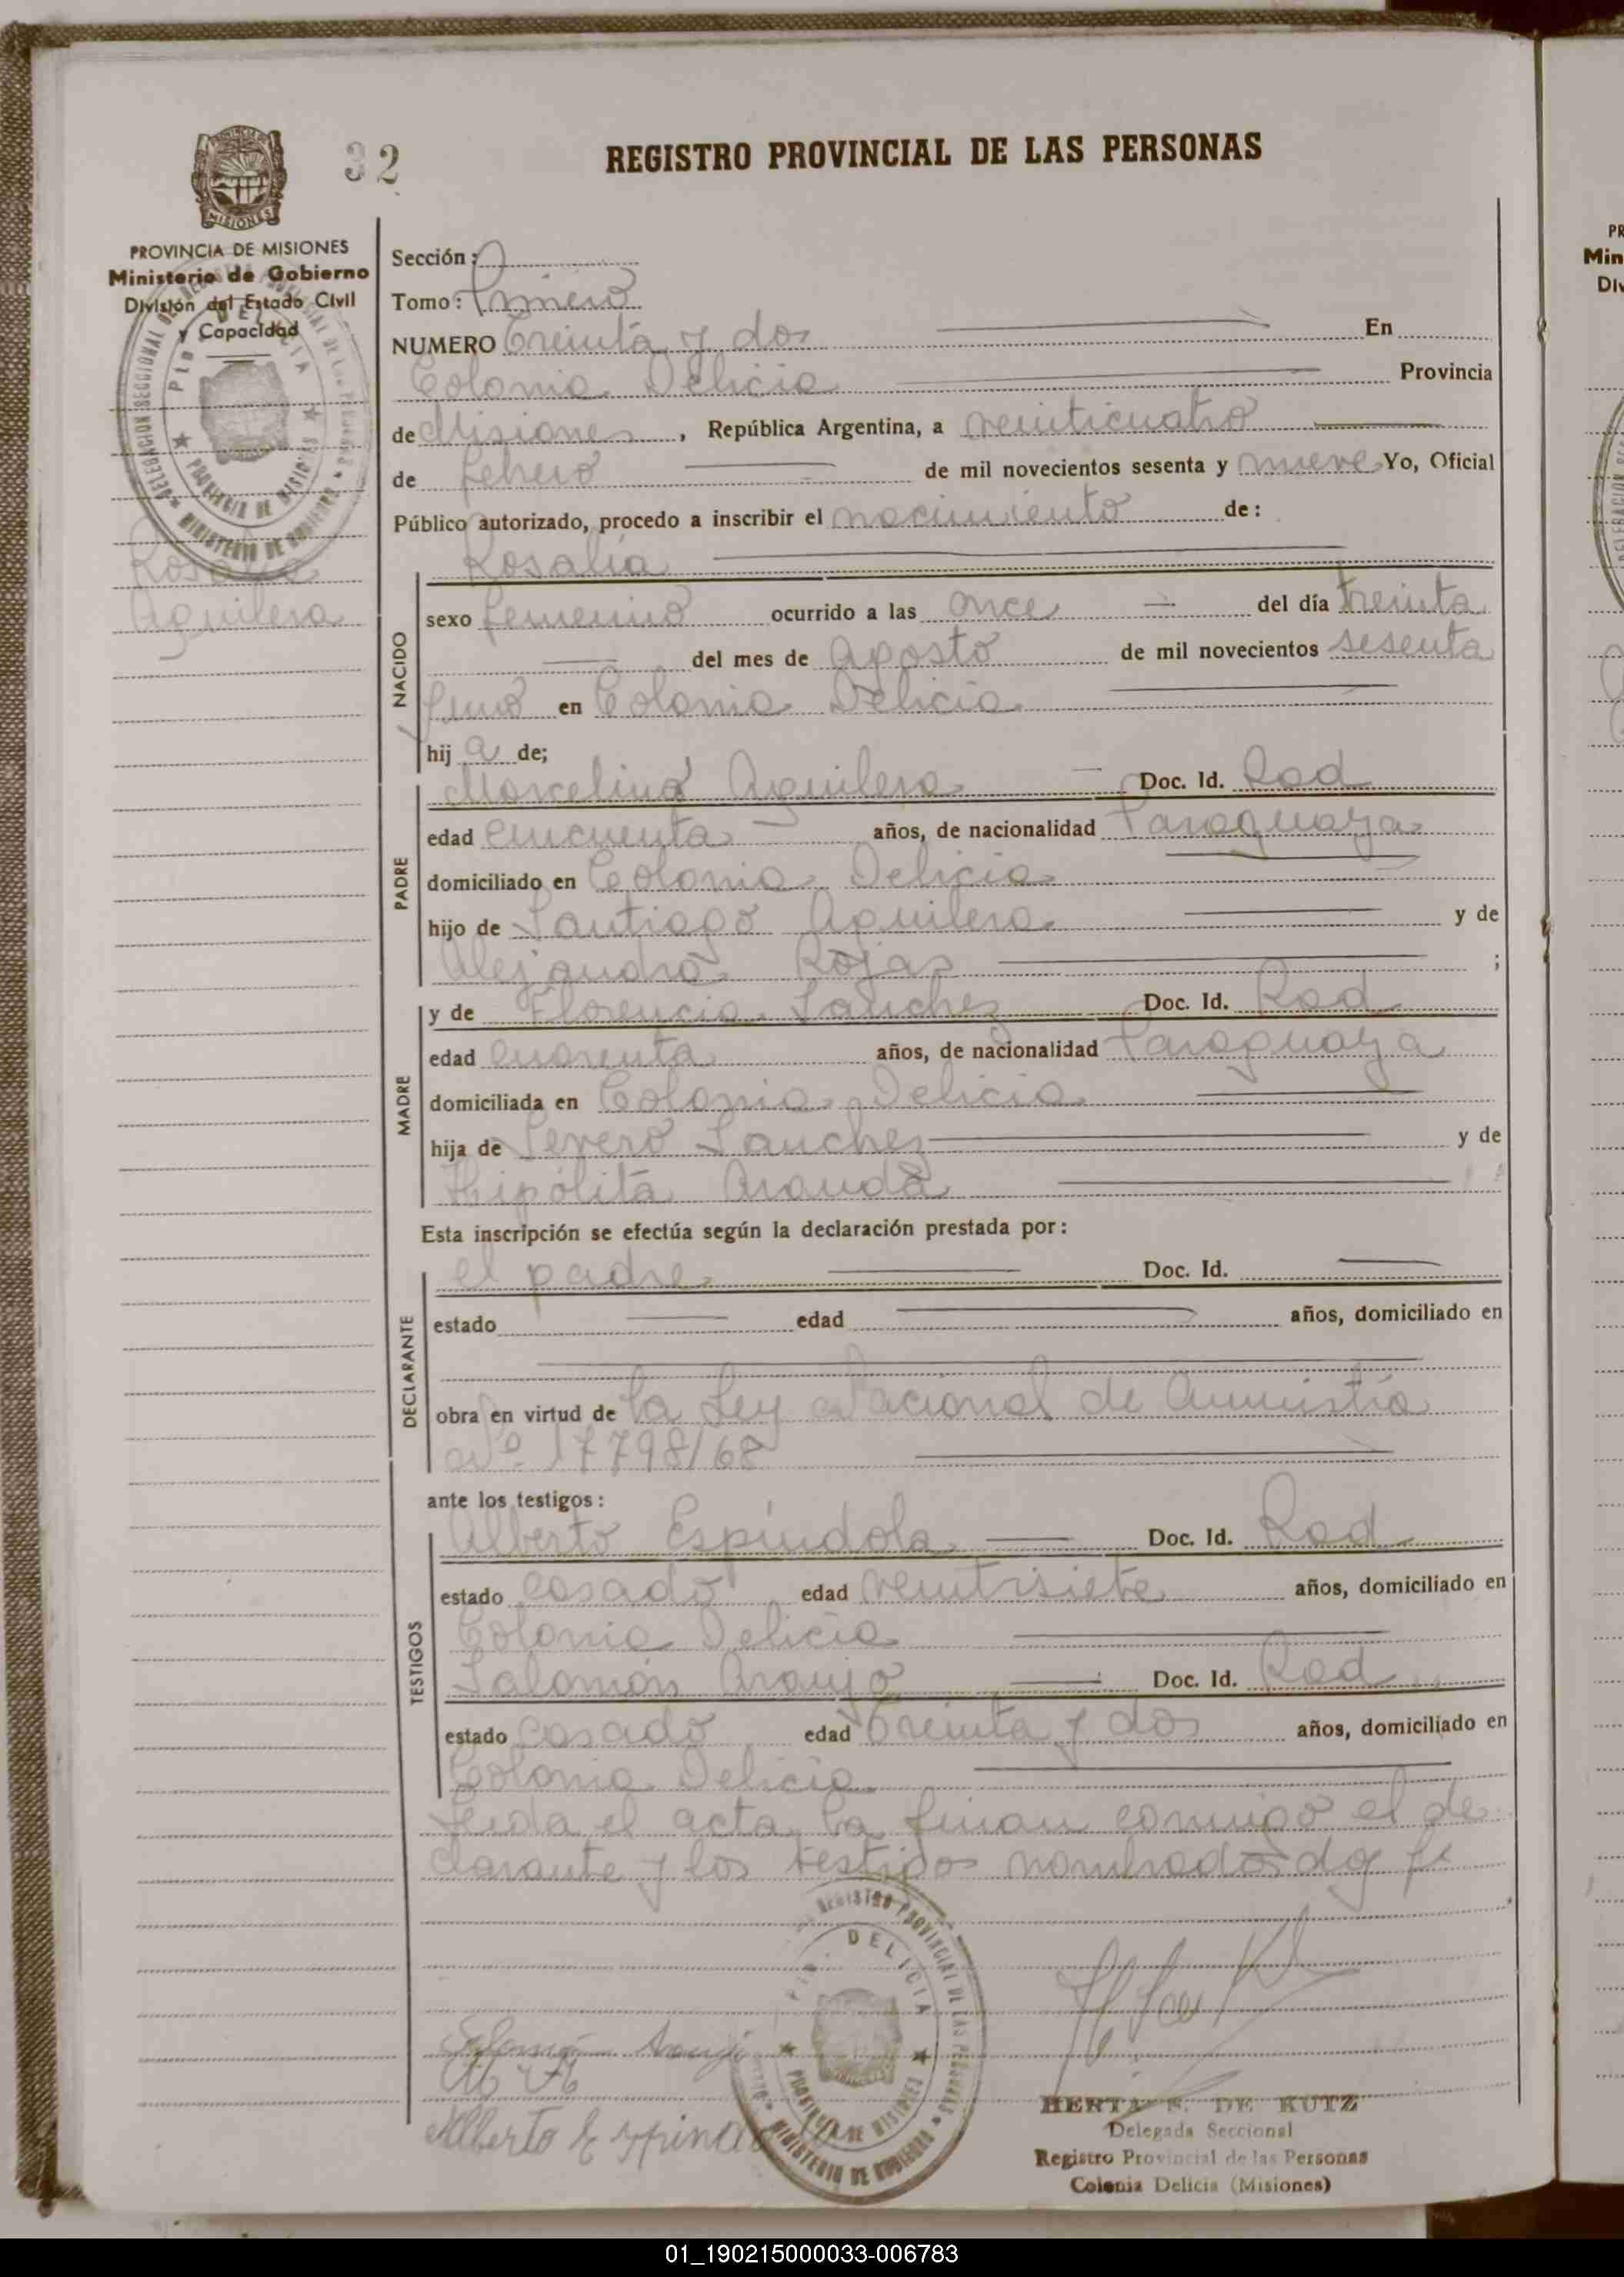 32
REGISTRO PROVINCIAL DE LAS PERSONAS
PROVINCIA DE MISIONES
Ministerio de Gobierno
División del Estado Civil
y Capacidad
Rosalía
Aguilera
Sección:
Tomo: Primero
NUMERO Treinta y dos En
Colonia Delicia Provincia
de Misiones, República Argentina, a veinticuatro
de febrero de mil novecientos sesenta y nueve Yo, Oficial
Público autorizado, procedo a inscribir el nacimiento de:
Rosalía
NACIDO
sexo femenino ocurrido a las once del día treinta
del mes de Agosto de mil novecientos sesenta
y uno en Colonia Delicia
hij a de;
PADRE
Marcelino Aguilera Doc. Id. Rad
edad cincuenta años, de nacionalidad Paraguaya
domiciliado en Colonia Delicia
hijo de Santiago Aguilera y de
Alejandra Rojas ;
MADRE
y de Florencia Sanchez Doc. Id. Rad
edad cuarenta años, de nacionalidad Paraguaya
domiciliada en Colonia Delicia
hija de Severo Sanchez y de
Hipólita Aranda
Esta inscripción se efectúa según la declaración prestada por:
DECLARANTE
el padre Doc. Id.
estado edad años, domiciliado en
obra en virtud de la Ley Nacional de Amnistía
Nº 17798/68
ante los testigos:
TESTIGOS
Alberto Espíndola Doc. Id. Rad
estado casado edad veintisiete años, domiciliado en
Colonia Delicia
Salomón Araujo Doc. Id. Rad
estado casado edad treinta y dos años, domiciliado en
Colonia Delicia
Leida el acta la firman conmigo el de
clarante y los testigos nombrados doy fe
REGISTRO PROVINCIAL DE LAS PERSONAS
DELICIA
PROVINCIA DE MISIONES
MINISTERIO DE GOBIERNO
Salomón Araujo
Alberto Espindola
HERTA S. DE KUTZ
Delegada Seccional
Registro Provincial de las Personas
Colonia Delicia (Misiones)
01_190215000033-006783